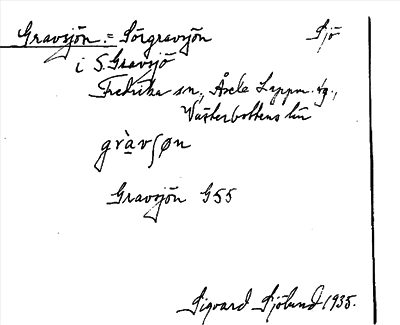 Gravsjön = Sörgravsjön Sjö
i S. Gravsjö
Fredrika sn., Åsele Lappm. tg.,
Västerbottens län
gràvʃøn
Gravsjön G55
Sigvard Sjölund 1935.